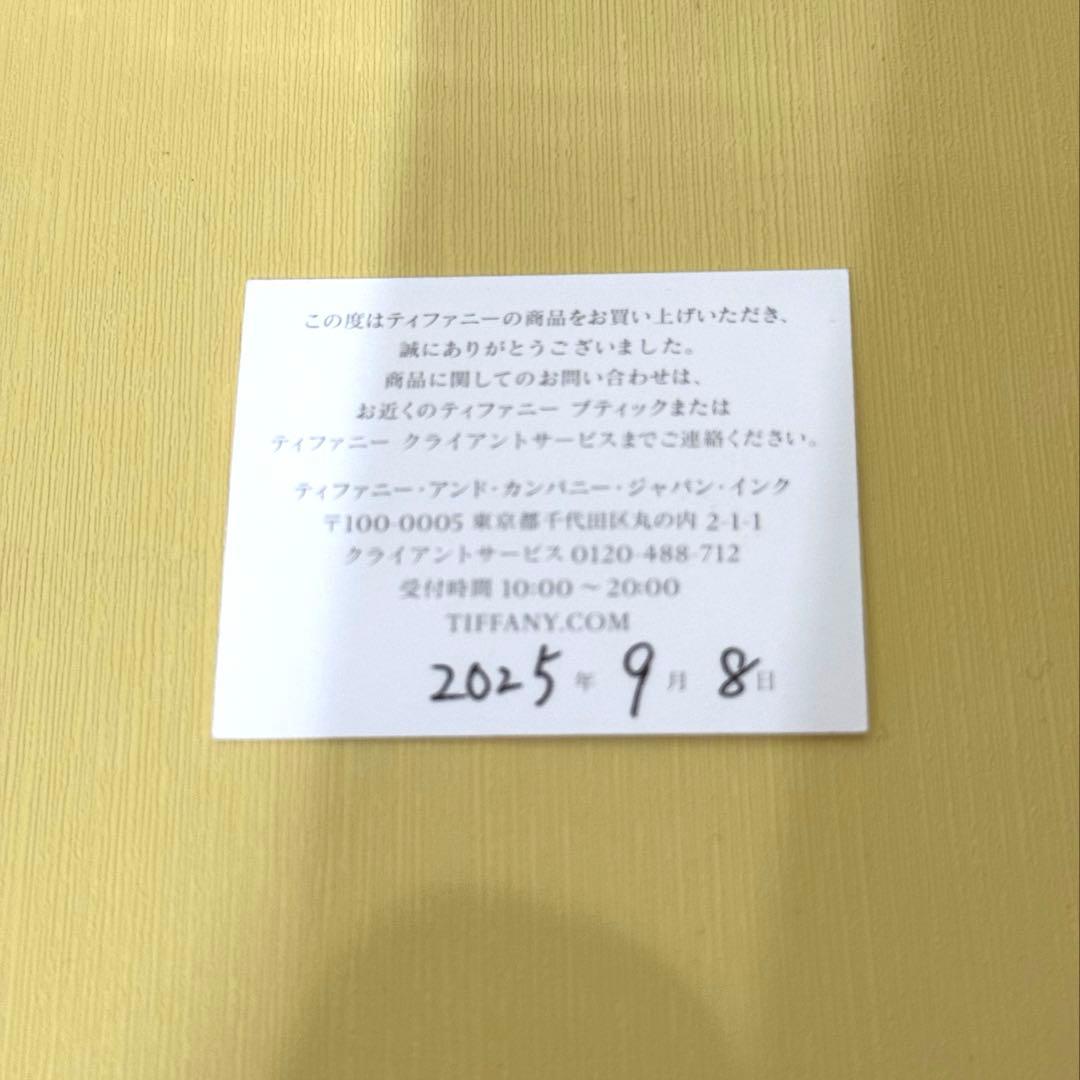 この度はティファニーの商品をお買い上げいただき、
誠にありがとうございました。
商品に関してのお問い合わせは、
お近くのティファニー ブティックまたは
ティファニー クライアントサービスまでご連絡ください。
ティファニー・アンド・カンパニー・ジャパン・インク
〒100-0005 東京都千代田区丸の内 2-1-1
クライアントサービス 0120-488-712
受付時間 10:00 ～ 20:00
TIFFANY.COM
2025年 9月 8日